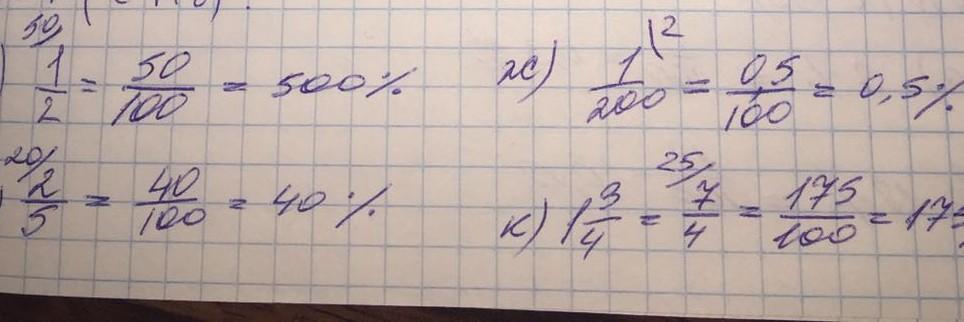 50/
1/2 = 50/100 = 500%
ж) 1/200 \2 = 0,5/100 = 0,5%
20/
2/5 = 40/100 = 40%
к) 1 3/4 = 25/ 7/4 = 175/100 = 175